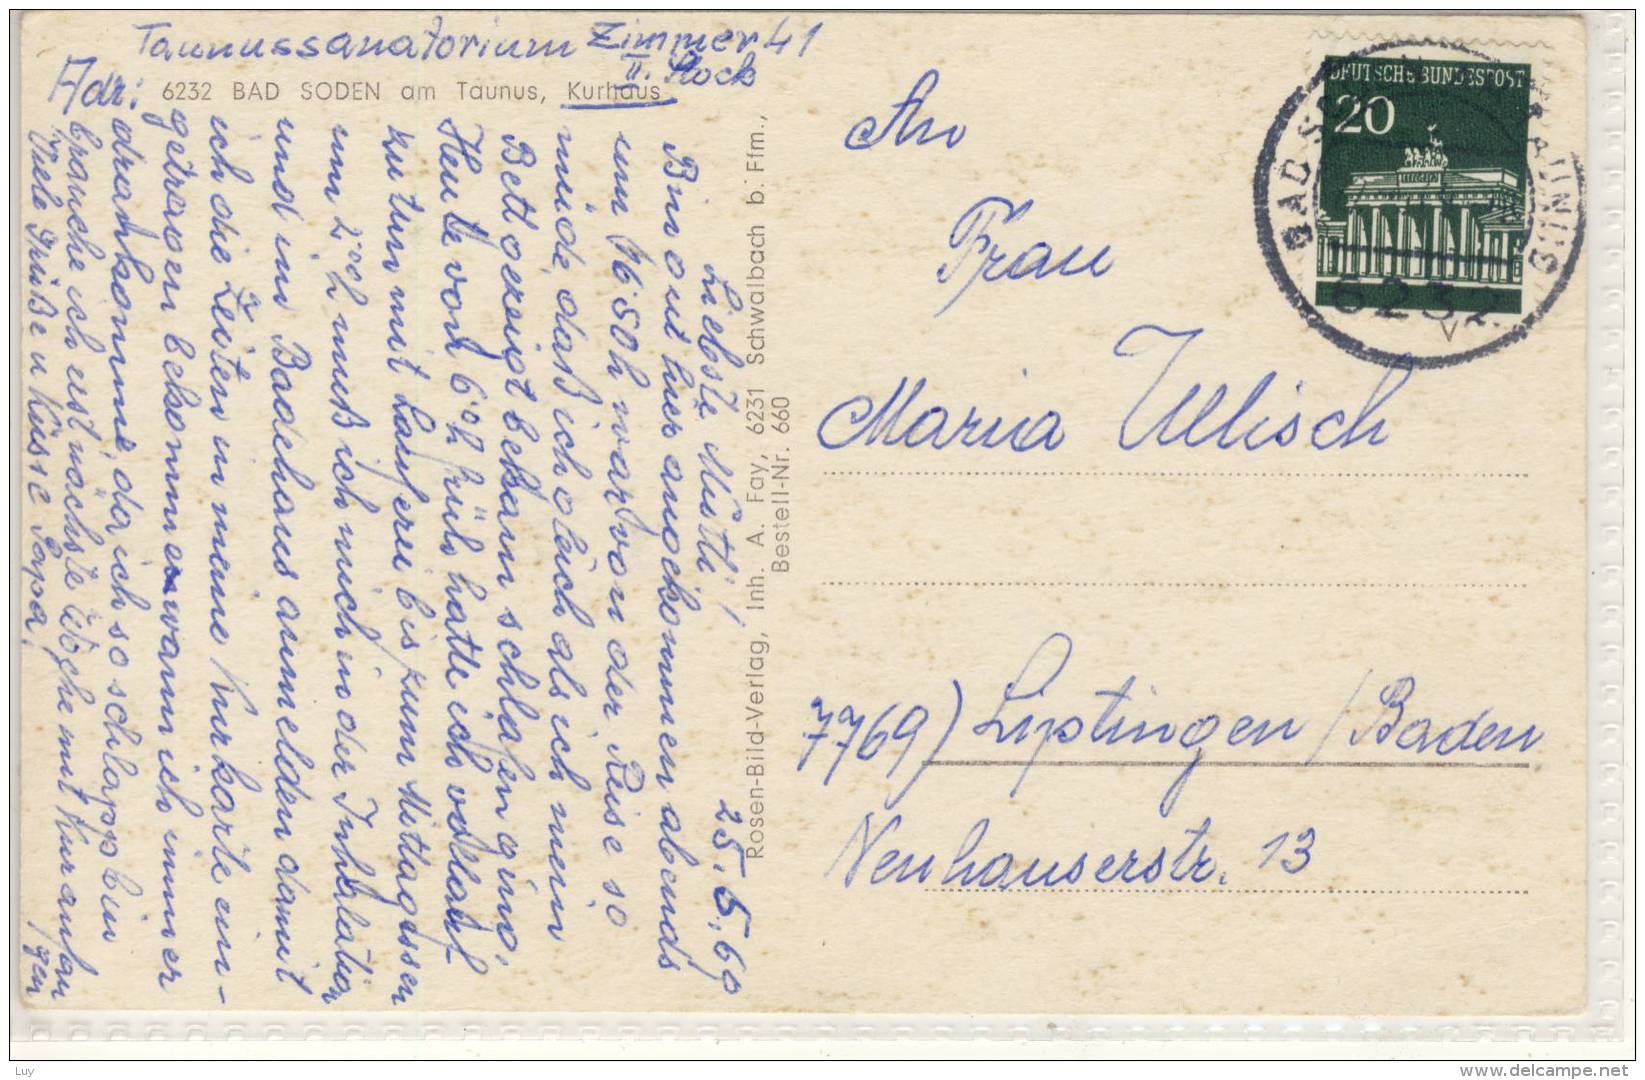 Taunussanatorium Zimmer 41
II. Stock
Adr: 6232 BAD SODEN am Taunus, Kurhaus
25.5.69
Liebste Mutti!
Bin gut hier angekommen abends
um 16.50h war von der Reise so
müde, daß ich gleich als ich mein
Bett gezeigt bekam schlafen ging.
Heute von 6°°h früh hatte ich vollauf
zu tun mit Lauferei bis zum Mittagessen
um 2°°h muß ich mich in der Inhalation
und im Badehaus anmelden damit
ich die Zeiten in meine Kurkarte ein-
getragen bekomme wann ich immer
drankomme, da ich so schlapp bin
brauche ich erst nächste Woche mit Kur anfan
gen
Viele Grüße u Küsse Papa.
Rosen-Bild-Verlag, Inh. A. Fay, 6231 Schwalbach b. Ffm.,
Bestell-Nr. 660
DEUTSCHE BUNDESPOST
20
BAD SODEN TAUNUS
6232
An
Frau
Maria Ullisch
7769) Liptingen / Baden
Neuhauserstr. 13
Luy
delcampe.net